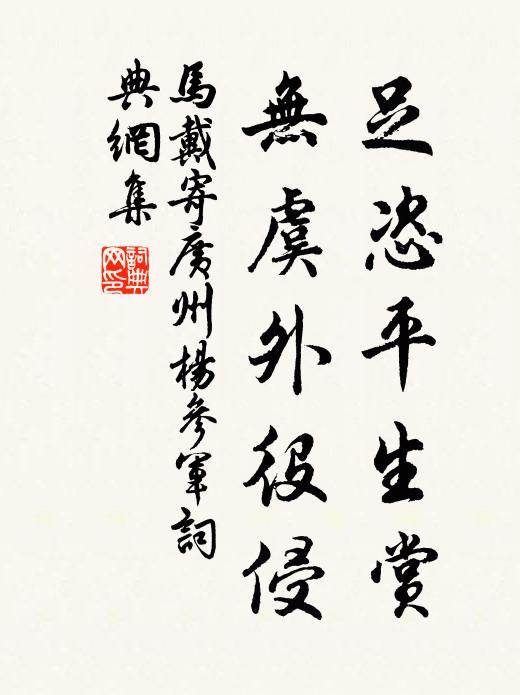 足恣平生賞
無虞外役侵
馬戴寄廣州楊參軍詞
典網集
詞典网印